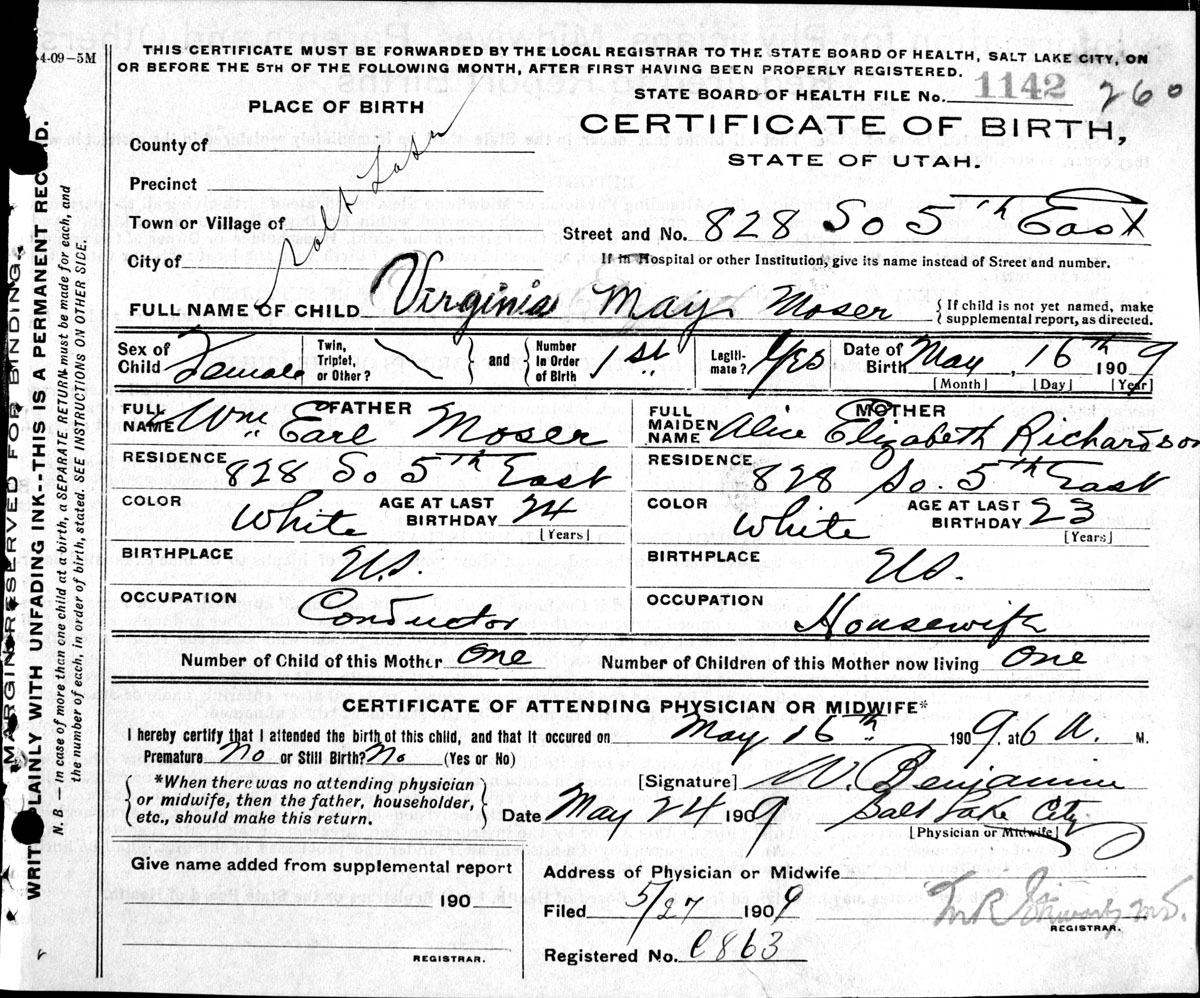 4-09-5M
THIS CERTIFICATE MUST BE FORWARDED BY THE LOCAL REGISTRAR TO THE STATE BOARD OF HEALTH, SALT LAKE CITY, ON
OR BEFORE THE 5TH OF THE FOLLOWING MONTH, AFTER FIRST HAVING BEEN PROPERLY REGISTERED.
STATE BOARD OF HEALTH FILE No. 1142 260
PLACE OF BIRTH
CERTIFICATE OF BIRTH,
STATE OF UTAH.
County of
Precinct
Town or Village of
City of
Salt Lake
Street and No. 828 So 5th East
If in Hospital or other Institution, give its name instead of Street and number.
FULL NAME OF CHILD Virginia May Moser {If child is not yet named, make
supplemental report, as directed.
Sex of Child Female Twin, Triplet, or Other? } and { Number in Order of Birth 1st Legiti-mate? Yes Date of Birth May, 16th 1909
[Month] [Day] [Year]
FATHER
FULL NAME Wm. Earl Moser
RESIDENCE
828 So 5th East
COLOR White AGE AT LAST BIRTHDAY 24
[Years]
BIRTHPLACE
U.S.
OCCUPATION
Conductor
MOTHER
FULL MAIDEN NAME Alice Elizabeth Richardson
RESIDENCE
828 So. 5th East
COLOR White AGE AT LAST BIRTHDAY 23
[Years]
BIRTHPLACE
US.
OCCUPATION
Housewife
Number of Child of this Mother One Number of Children of this Mother now living One
CERTIFICATE OF ATTENDING PHYSICIAN OR MIDWIFE*
I hereby certify that I attended the birth of this child, and that it occured on May 16th 1909, at 6 A. M.
Premature No or Still Birth? No (Yes or No)
{*When there was no attending physician
or midwife, then the father, householder,
etc., should make this return.}
[Signature] W. Benjamin
Date May 24 1909 Salt Lake City
[Physician or Midwife]
Give name added from supplemental report
190
REGISTRAR.
Address of Physician or Midwife
Filed 5/27 1909
REGISTRAR.
Registered No. C863
MARGIN RESERVED FOR BINDING
WRITE PLAINLY WITH UNFADING INK--THIS IS A PERMANENT RECORD.
N. B.—In case of more than one child at a birth, a SEPARATE RETURN must be made for each, and
the number of each, in order of birth, stated. SEE INSTRUCTIONS ON OTHER SIDE.